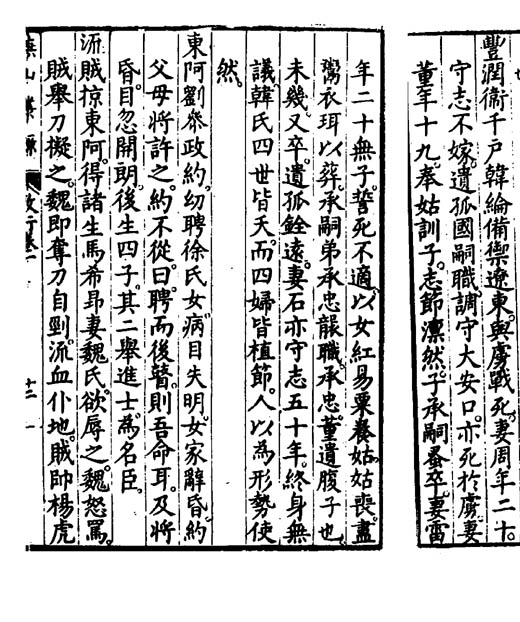 豐潤衞千戶韓綸備禦遼東與虜戰死妻周年二十
守志不嫁遺孤國嗣職調守大安口亦死於虜妻
董年十九奉姑訓子志節凜然子承嗣蚤卒妻雷
年二十無子誓死不適以女紅易粟養姑姑喪盡
鬻衣珥以葬承嗣弟承忠襲職承忠董遺腹子也
未幾又卒遺孤銓遠妻石亦守志五十年終身無
議韓氏四世皆夭而四婦皆植節人以為形勢使
然
東阿劉叅政約幼聘徐氏女病目失明女家辭昏約
父母將許之約不從曰聘而後瞽則吾命耳及將
昏目忽開朗後生四子其二舉進士為名臣
流賊掠東阿得諸生馬希昂妻魏氏欲辱之魏怒罵
賊舉刀擬之魏即奪刀自剄流血仆地賊帥楊虎